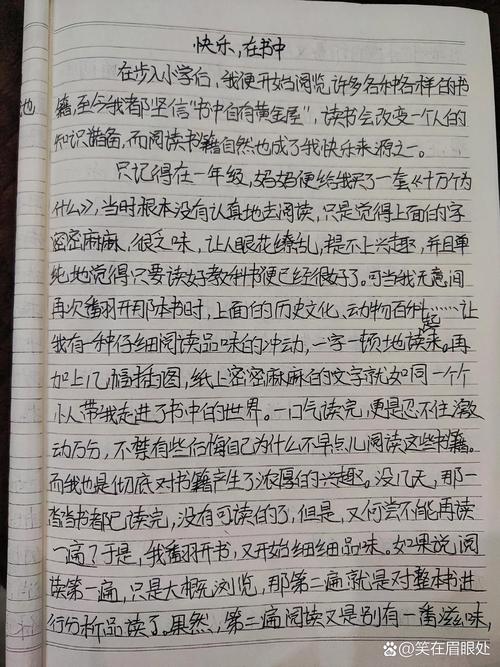 快乐,在书中
在步入小学后,我便开始阅览许多各种各样的书
籍,至今我都坚信“书中自有黄金屋”,读书会改变一个人的
知识储备,而阅读书籍自然也成了我快乐来源之一。
只记得在一年级,妈妈便给我买了一套《十万个为
什么》,当时根本没有认真地去阅读,只是觉得上面的字
密密麻麻,很乏味,让人眼花缭乱,提不上兴趣,并且单
纯地觉得只要读好教科书便已经很好了。可当我无意间
再次翻开那本书时,上面的历史文化、动物百科……让
我有一种仔细阅读品味的冲动,一字一顿地读起来。再
加上几幅插图,纸上密密麻麻的文字就如同一个个
小人带我走进了书中的世界。一口气读完,更是忍不住激
动万分,不禁有些后悔自己为什么不早点儿阅读这些书籍。
而我也是彻底对书籍产生了浓厚的兴趣。没几天,那一
沓书都已读完,没有可读的了,但是,又何尝不能再读
一遍了于是,我翻开书,又开始细细品味。如果说,阅
读第一遍,只是大概浏览,那第二遍就是对整本书进
行分析品读了。果然,第二遍阅读又是别有一番滋味,
他
笑在眉眼处